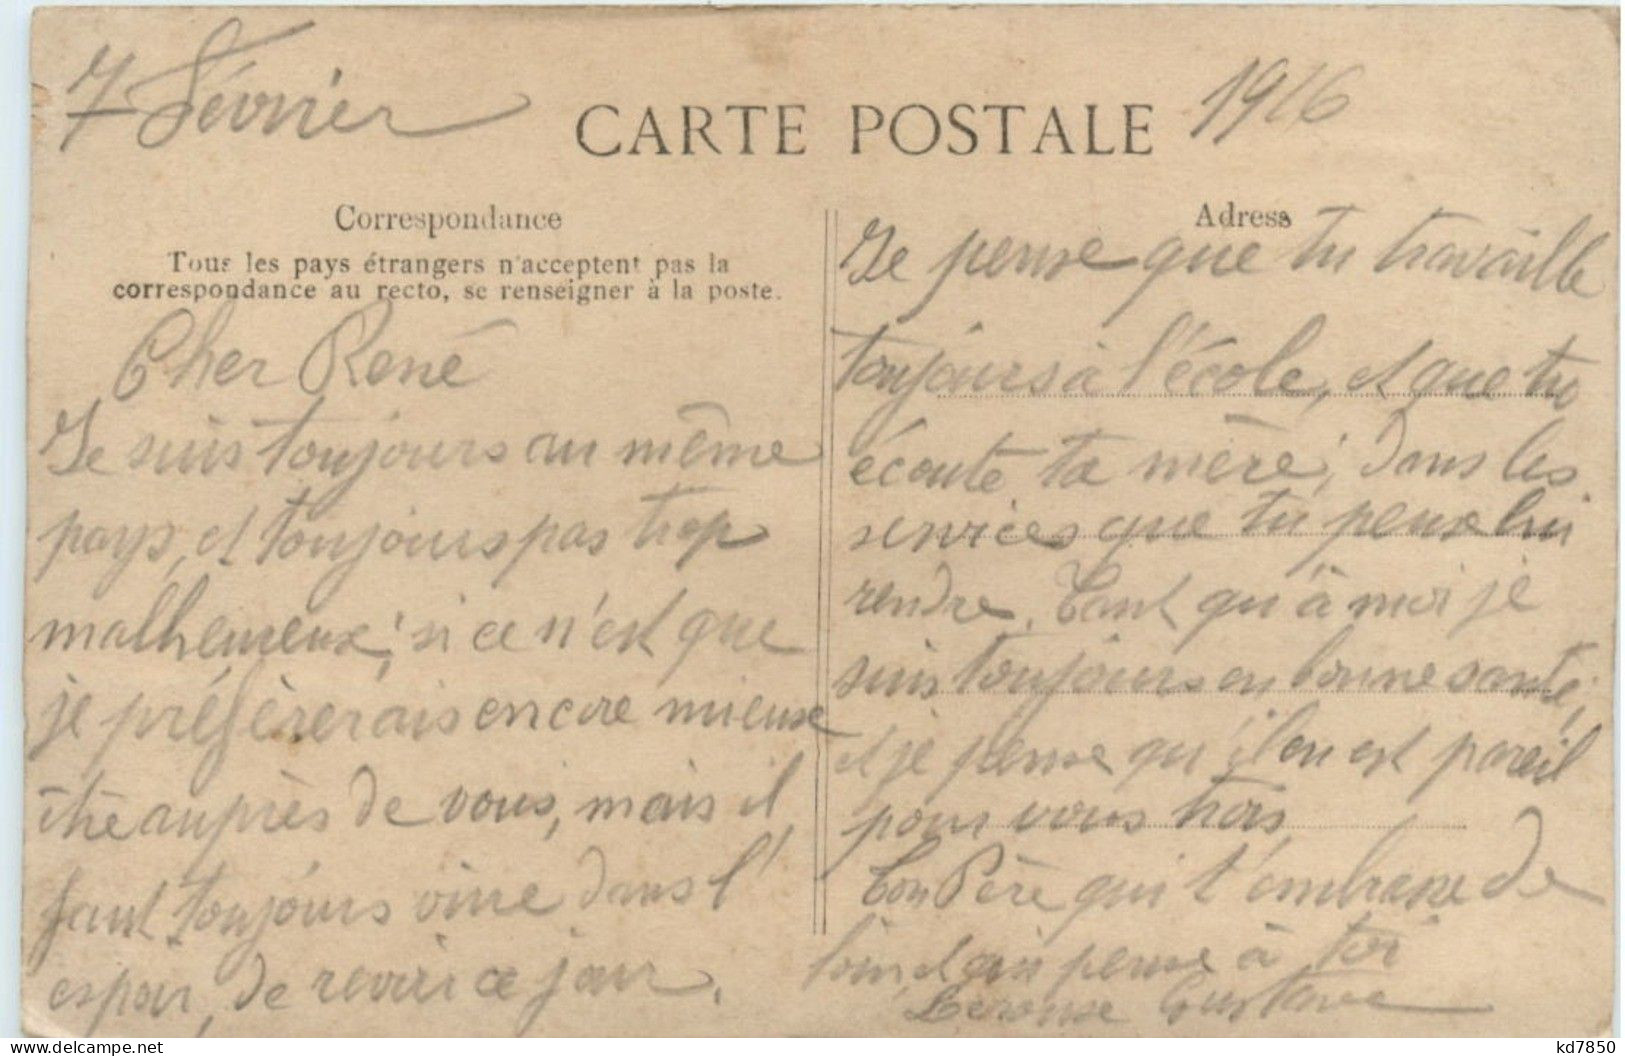 7 Février
1916
CARTE POSTALE
Correspondance
Tous les pays étrangers n'acceptent pas la
correspondance au recto, se renseigner à la poste.
Cher René
Je suis toujours au même
pays, et toujours pas trop
malheureux; si ce n'est que
je préférerais encore mieux
être auprès de vous, mais il
faut toujours vivre dans l'
espoir, de revoir ce jour.
Adress
Je pense que tu travaille
toujours à l'école, et que tu
écoute ta mère; dans les
services que tu peuse lui
rendre. Tant qu'à moi je
suis toujours en bonne santé,
et je pense qu'il en est pareil
pour vous trois
Ton Père qui t'embrasse de
loin, et qui pense à toi
Gustave
delcampe.net
kd7850